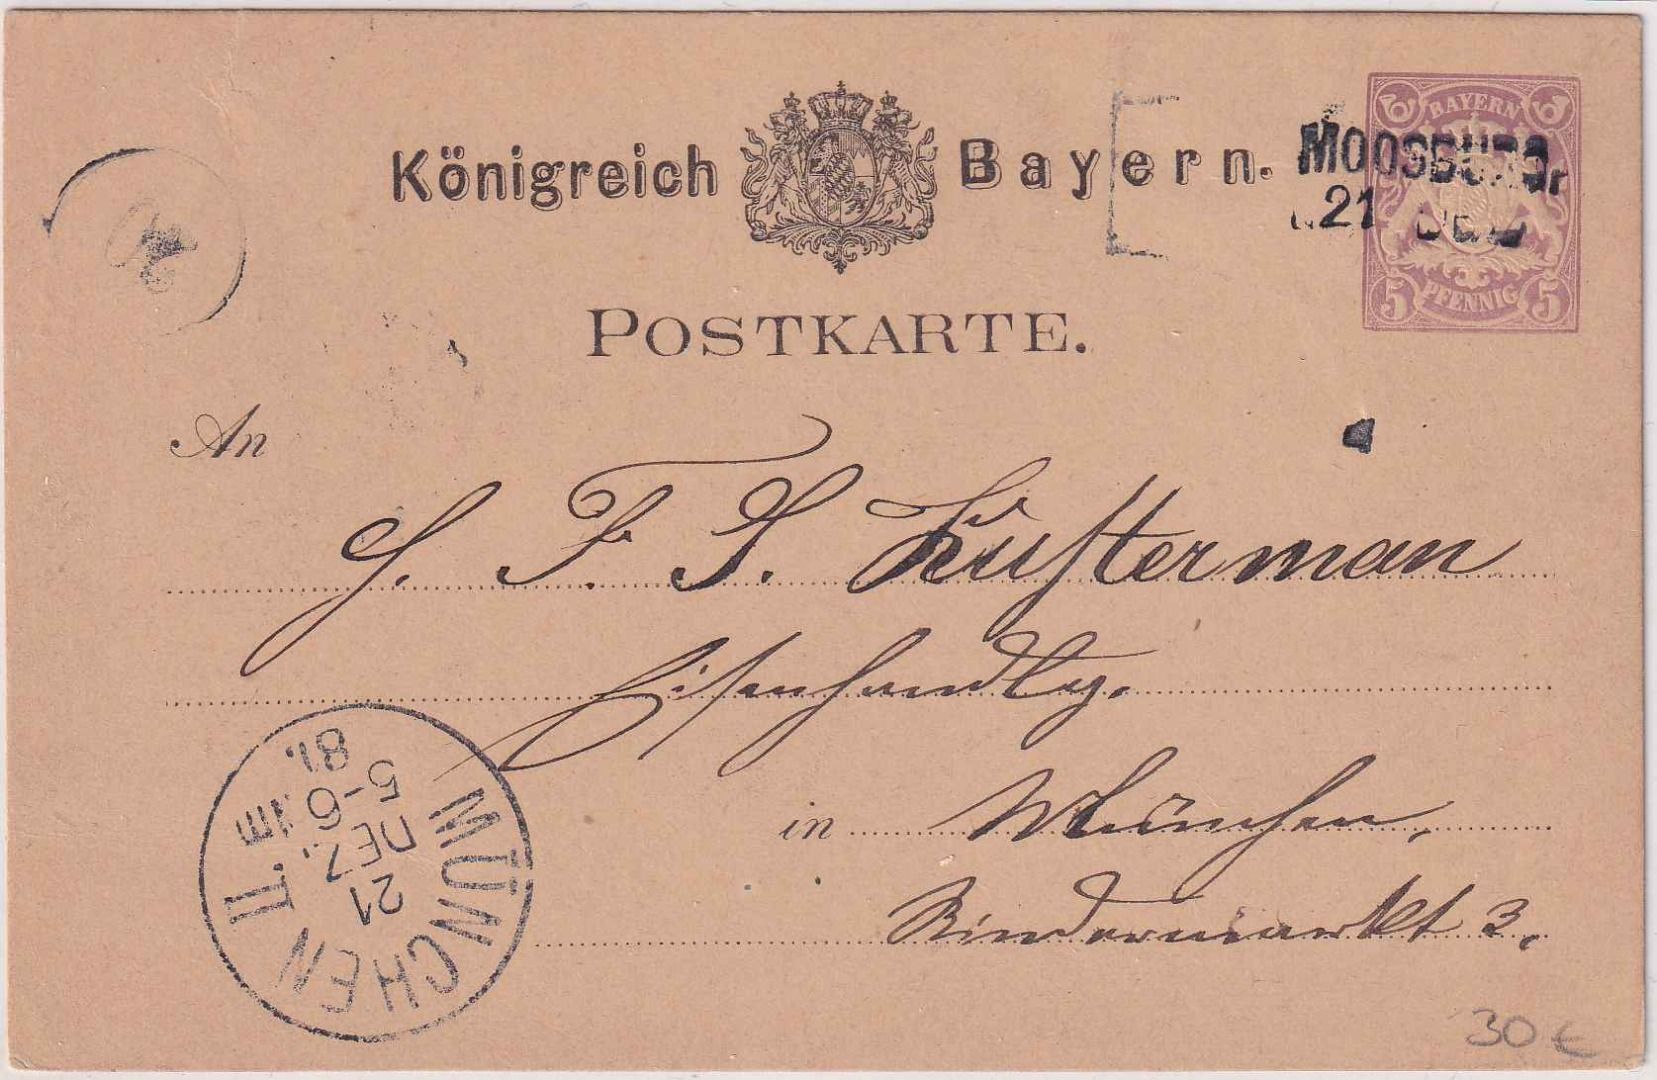 Königreich Bayern.
BAYERN
MOOSBURG
21 DEZ
5 PFENNIG 5
20
POSTKARTE.
An
H. F. S. Kusterman
Eisenhandlg.
in München,
Rindermarkt 3.
MÜNCHEN II
21
DEZ.
5-6 Nm
81.
30 €